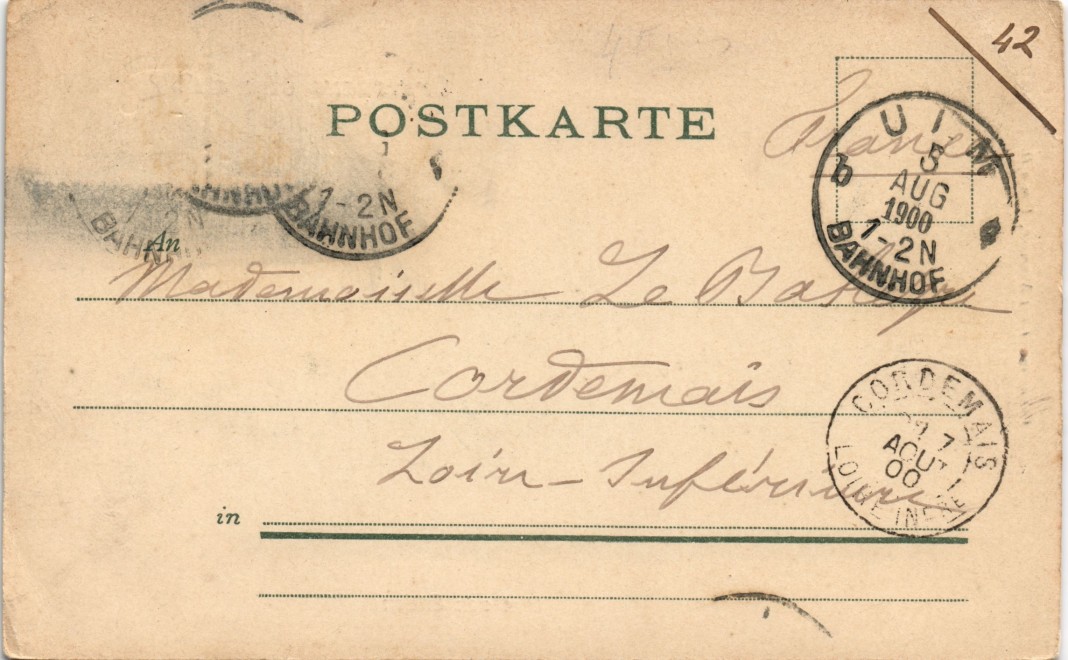 42
POSTKARTE
ULM
5
AUG
1900
1-2N
b
BAHNHOF
1-2N
BAHNHOF
BAHNHOF
1-2N
BAHNHOF
An
Mademoiselle Le
Cordemais
Loire-Inférieure
in
CORDEMAIS
7
AOUT
00
LOIRE INFRE